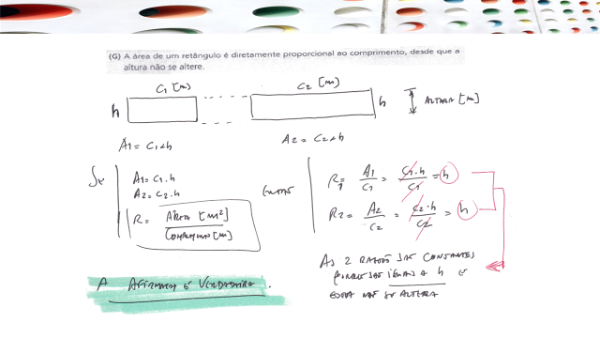 (G) A área de um retângulo é diretamente proporcional ao comprimento, desde que a
altura não se altere.
C1 [m]
C2 [m]
h
h
ALTURA [m]
A1 = C1 * h
A2 = C2 * h
Se
A1 = C1 . h
A2 = C2 . h
R = ÁREA [m²]
COMPRIMENTO [m]
ENTÃO
R1 = A1 / C1 = C1 . h / C1 = h
R2 = A2 / C2 = C2 . h / C2 = h
AS 2 RAZÕES SÃO CONSTANTES
PORQUE SÃO IGUAIS A h E
ESTA NÃO SE ALTERA
A AFIRMAÇÃO É VERDADEIRA.